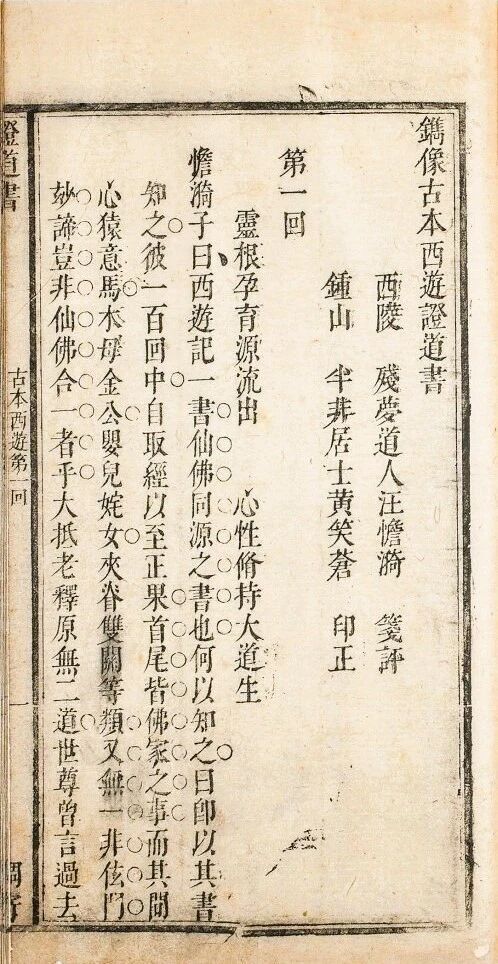 鐫像古本西遊證道書
西陵 殘夢道人汪憺漪 箋評
鍾山 半非居士黃笑蒼 印正
第一回
靈根孕育源流出 心性脩持大道生
憺漪子曰西遊記一書仙佛同源之書也何以知之曰卽以其書
知之彼一百回中自取經以至正果首尾皆佛家之事而其間
心猿意馬木母金公嬰兒姹女夾脊雙關等類又無一非伭門
妙諦豈非仙佛合一者乎大抵老釋原無二道世尊曾言過去
證道書
古本西遊第一回
一